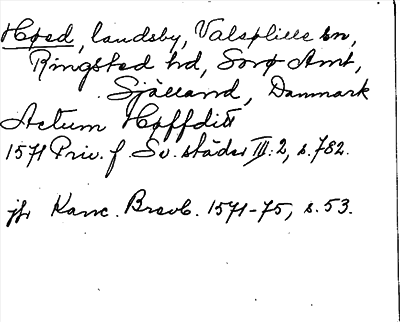 Høed, landsby, Valsølille sn,
Ringsted hd, Sorø Amt,
Själland, Danmark
Actum Høffditt
1571 Priv. f Sv. städer III:2, s. 782.
jfr Kanc. Brevb. 1571-75, s. 53.